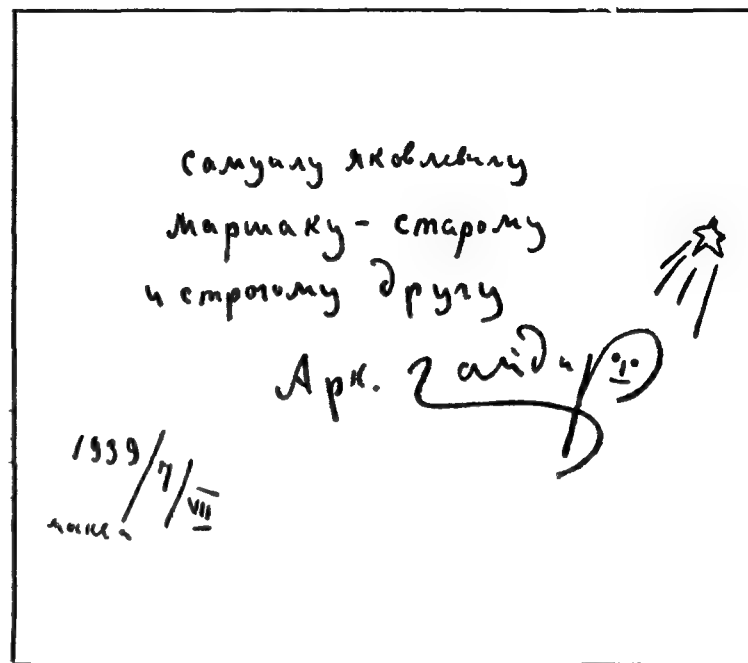 Самуилу Яковлевичу
Маршаку - старому
и строгому другу
Арк. Гайдар
1939/7/VII